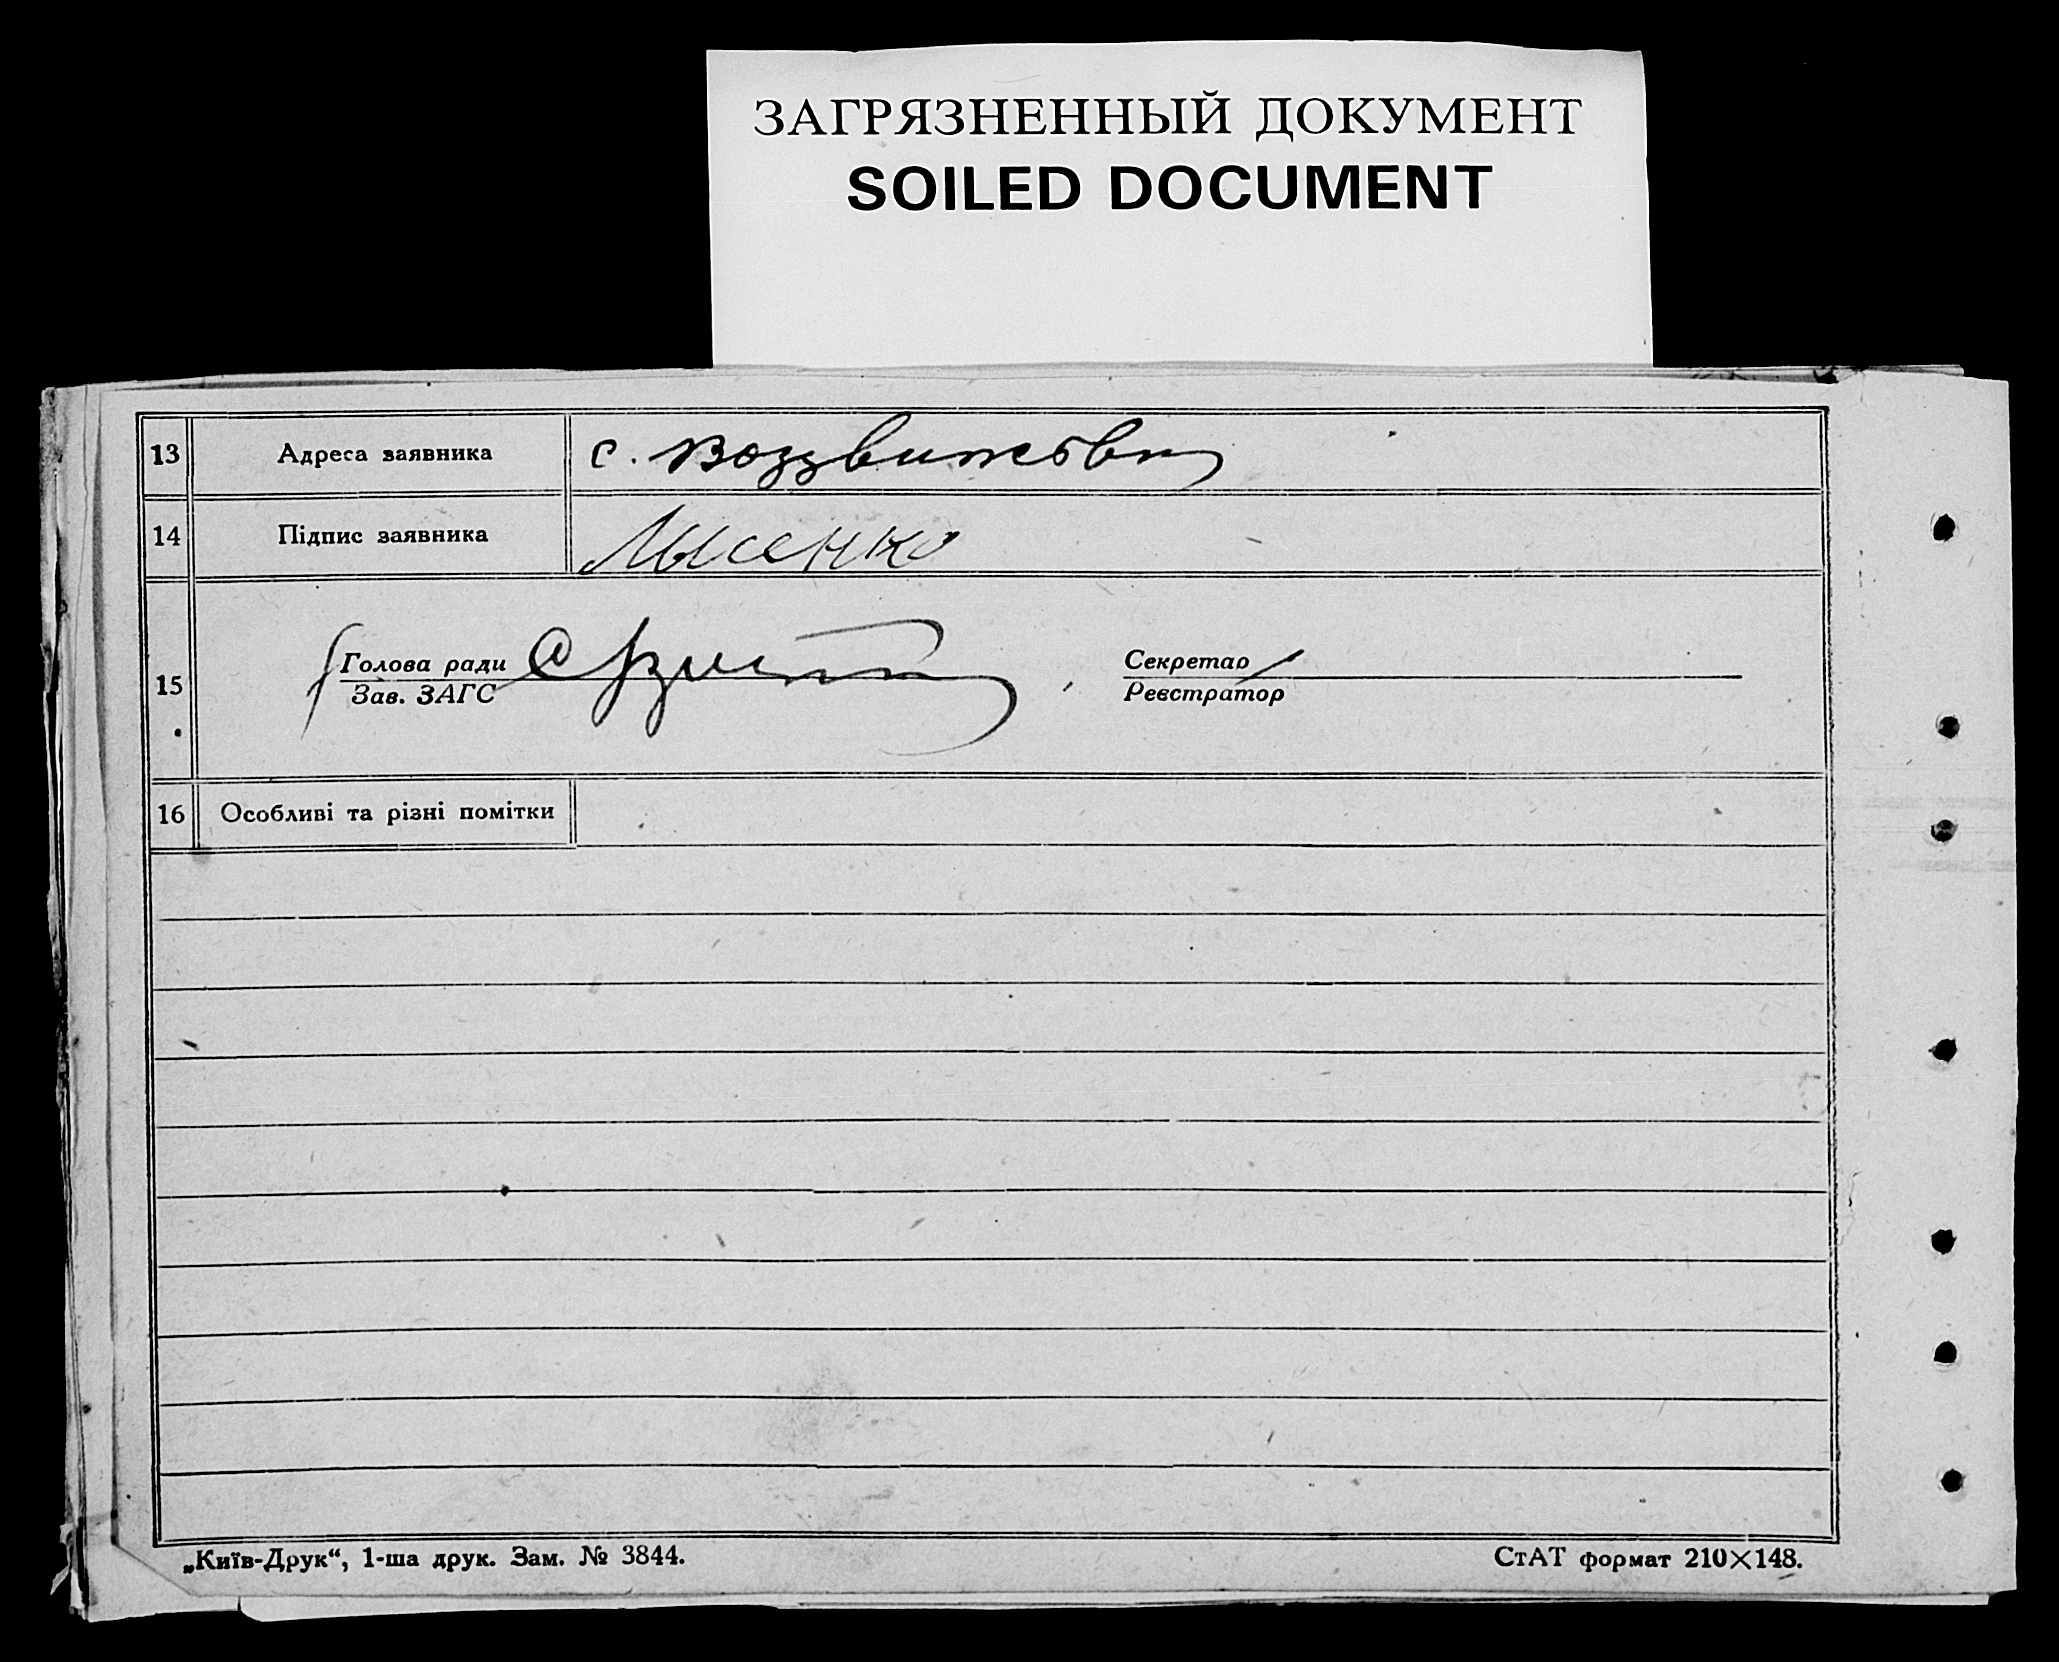 ЗАГРЯЗНЕННЫЙ ДОКУМЕНТ
SOILED DOCUMENT
13 Адреса заявника с. Воздвижовка
14 Підпис заявника Лысенко
15 Голова ради Секретар
Зав. ЗАГС Реєстратор
16 Особливі та різні помітки
„Київ-Друк“, 1-ша друк. Зам. № 3844. СтАТ формат 210×148.